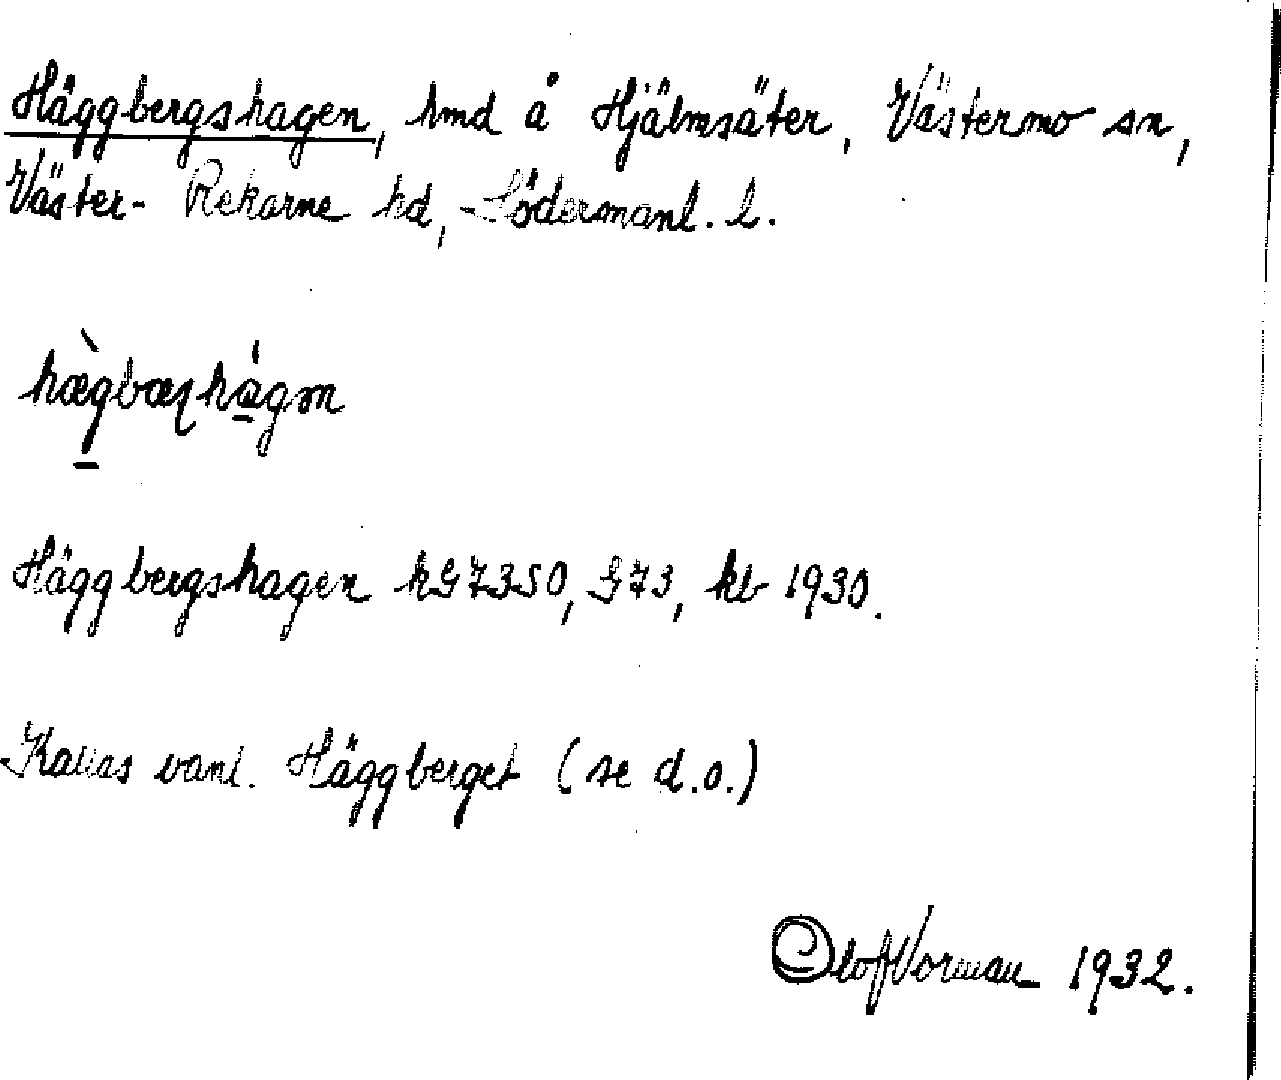 Häggbergshagen, hmd å Hjälmsäter, Västermo sn,
Väster-Rekarne hd, Södermanl. l.
Häggbergshagen hG7350, G73, kb 1930.
Kallas vanl. Häggberget (se d.o.)
Olof Vorman 1932.